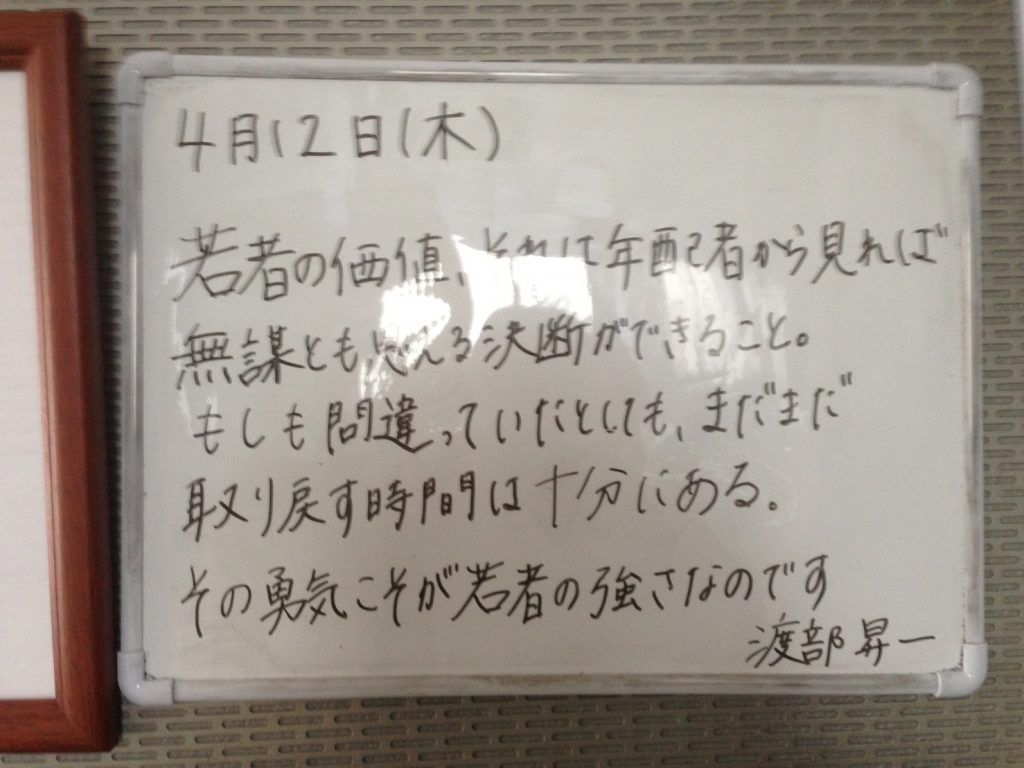 4月12日(木)
若者の価値、それは年配者から見れば
無謀とも思える決断ができること。
もしも間違っていたとしても、まだまだ
取り戻す時間は十分にある。
その勇気こそが若者の強さなのです
渡部昇一